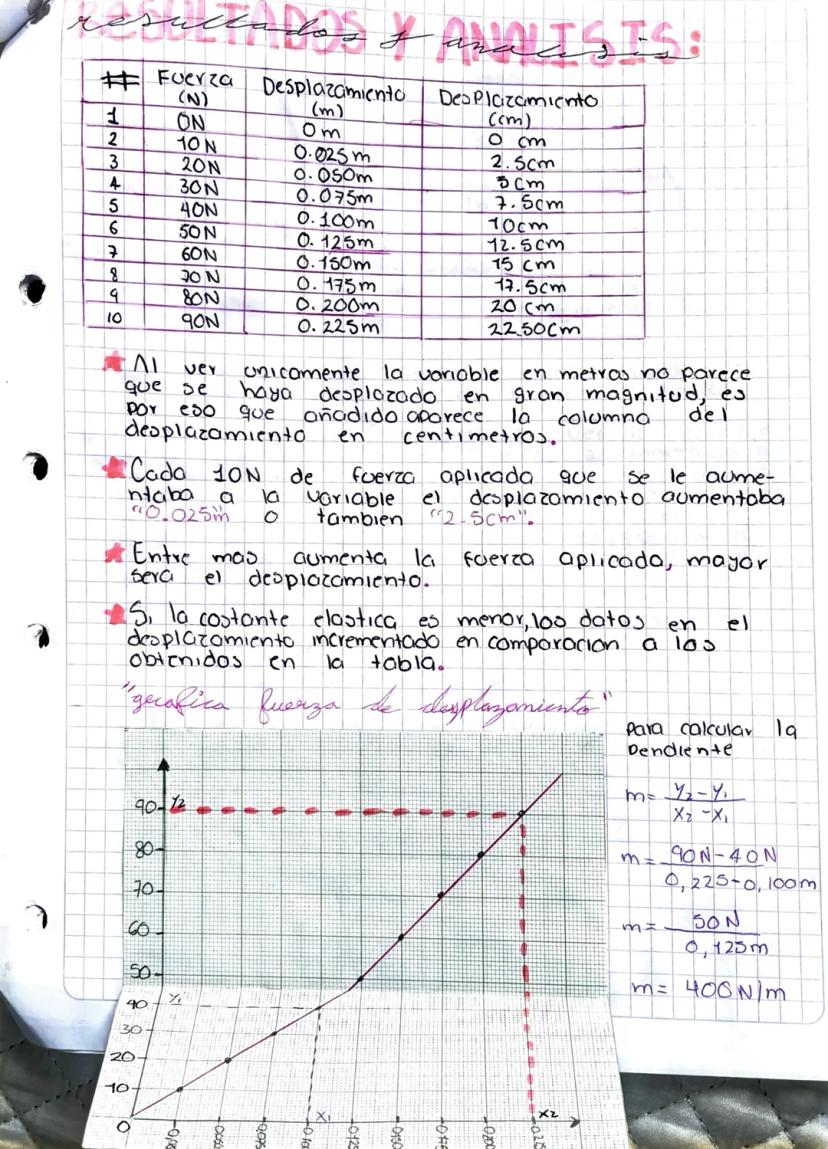 resultados y analisis
RESULTADOS Y ANALISIS:
# Fuerza (N) Desplazamiento (m) Desplazamiento (cm)
1 0N 0m 0 cm
2 10N 0.025m 2.5cm
3 20N 0.050m 5cm
4 30N 0.075m 7.5cm
5 40N 0.100m 10cm
6 50N 0.125m 12.5cm
7 60N 0.150m 15 cm
8 70N 0.175m 17.5cm
9 80N 0.200m 20 cm
10 90N 0.225m 22.50cm
Al ver unicamente la variable en metras no parece
que se haya desplazado en gran magnitud, es
por eso que añadido aparece la columna del
desplazamiento en centimetros.
Cada 10N de fuerza aplicada que se le aume-
ntaba a la variable el desplazamiento aumentaba
"0.025m" o tambien "2.5cm".
Entre mas aumenta la fuerza aplicada, mayor
sera el desplazamiento.
Si la costante elastica es menor, los datos en el
desplazamiento incrementado en comparacion a los
obtenidos en la tabla.
"gerafica fuerza de desplazamiento"
Para calcular la
Pendiente
m= Y2-Y1
X2-X1
m= 90N-40N
0,225-0,100m
m= 50N
0,125m
m= 400N/m
90 Y2
80
70
60
50
40 Y1
30
20
10
0
X1 X2